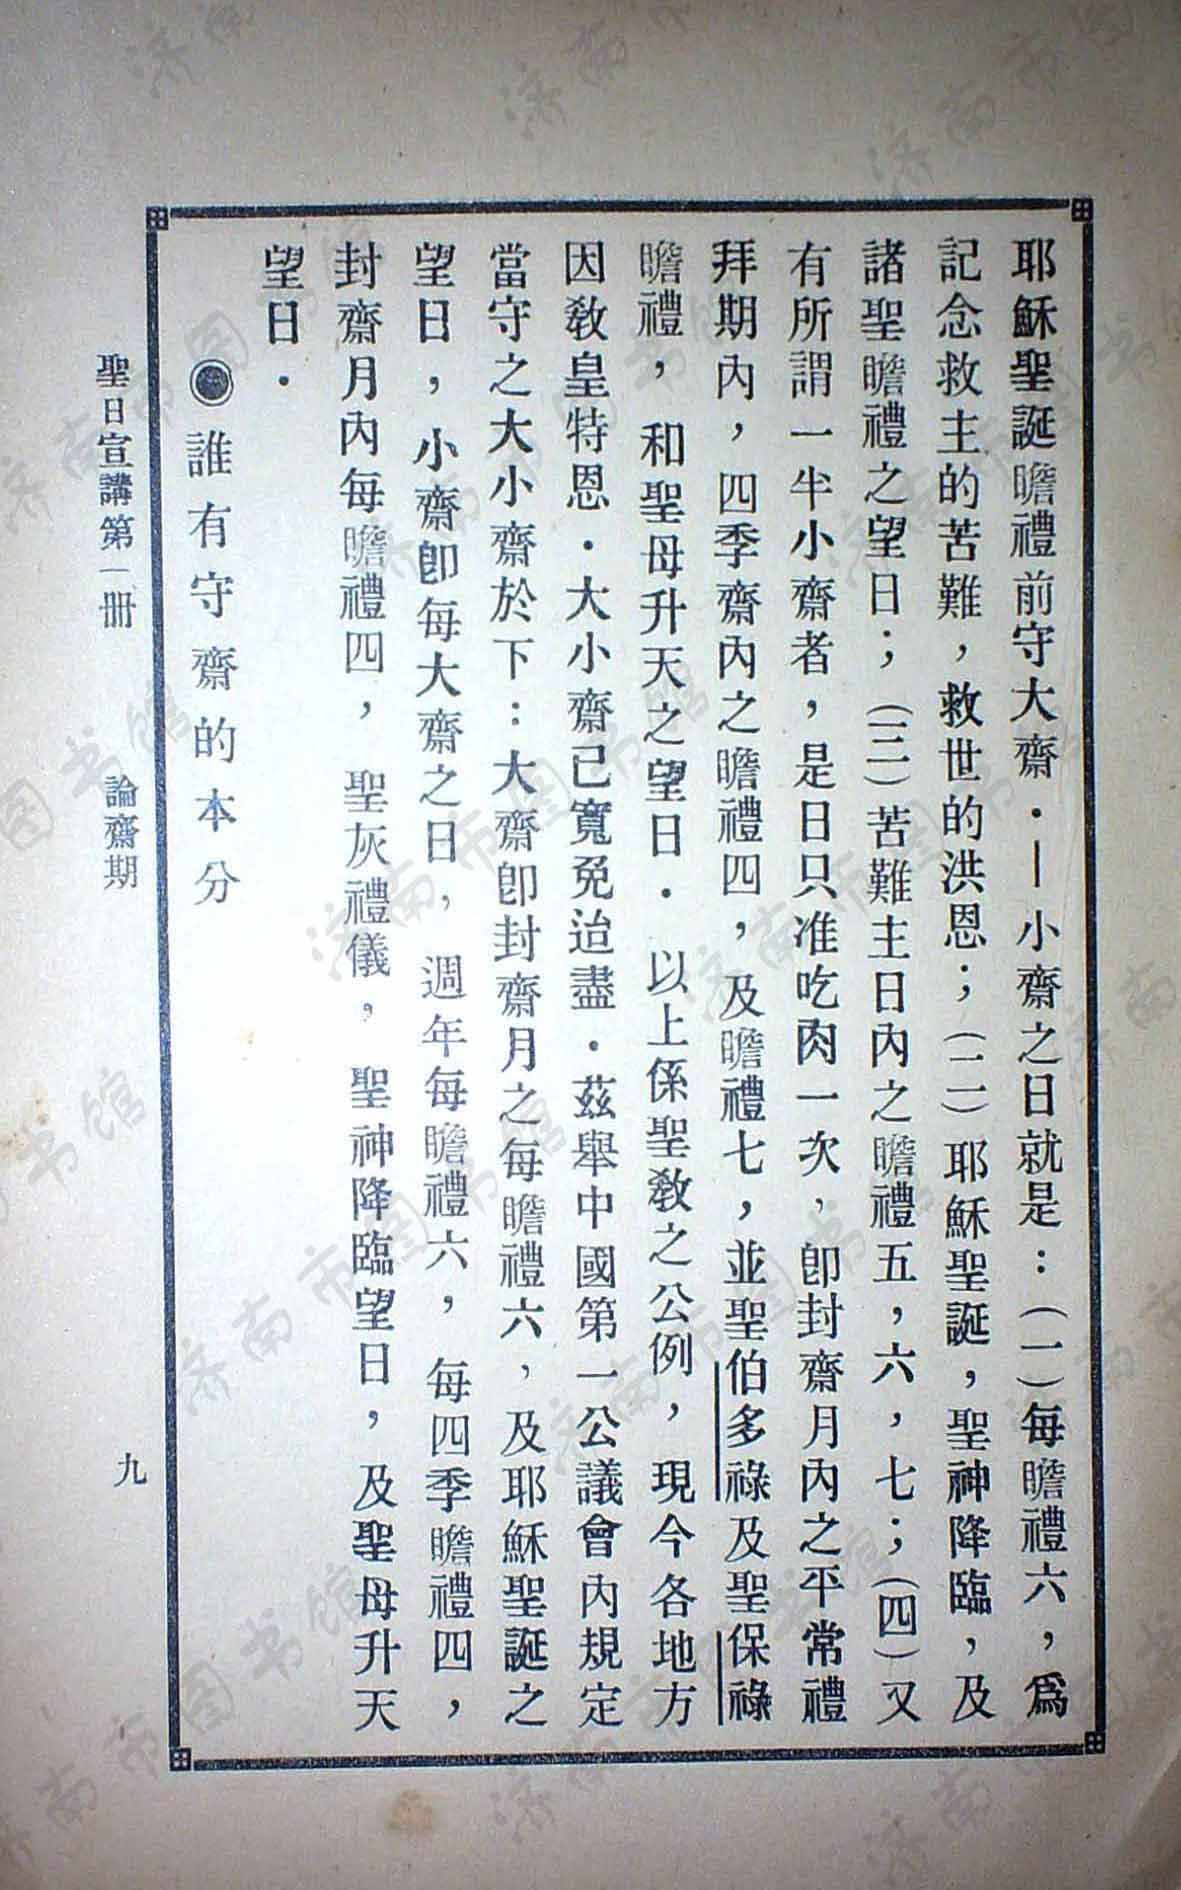 耶穌聖誕瞻禮前守大齋．—小齋之日就是：（一）每瞻禮六，爲
記念救主的苦難，救世的洪恩；（二）耶穌聖誕，聖神降臨，及
諸聖瞻禮之望日；（三）苦難主日內之瞻禮五，六，七；（四）又
有所謂一半小齋者，是日只准吃肉一次，卽封齋月內之平常禮
拜期內，四季齋內之瞻禮四，及瞻禮七，並聖伯多祿及聖保祿
瞻禮，和聖母升天之望日．以上係聖敎之公例，現今各地方
因敎皇特恩．大小齋已寬免迨盡．茲舉中國第一公議會內規定
當守之大小齋於下：大齋卽封齋月之每瞻禮六，及耶穌聖誕之
望日，小齋卽每大齋之日，週年每瞻禮六，每四季瞻禮四，
封齋月內每瞻禮四，聖灰禮儀，聖神降臨望日，及聖母升天
望日．
◉誰有守齋的本分
聖日宣講第一冊　論齋期　九
济南市图书馆